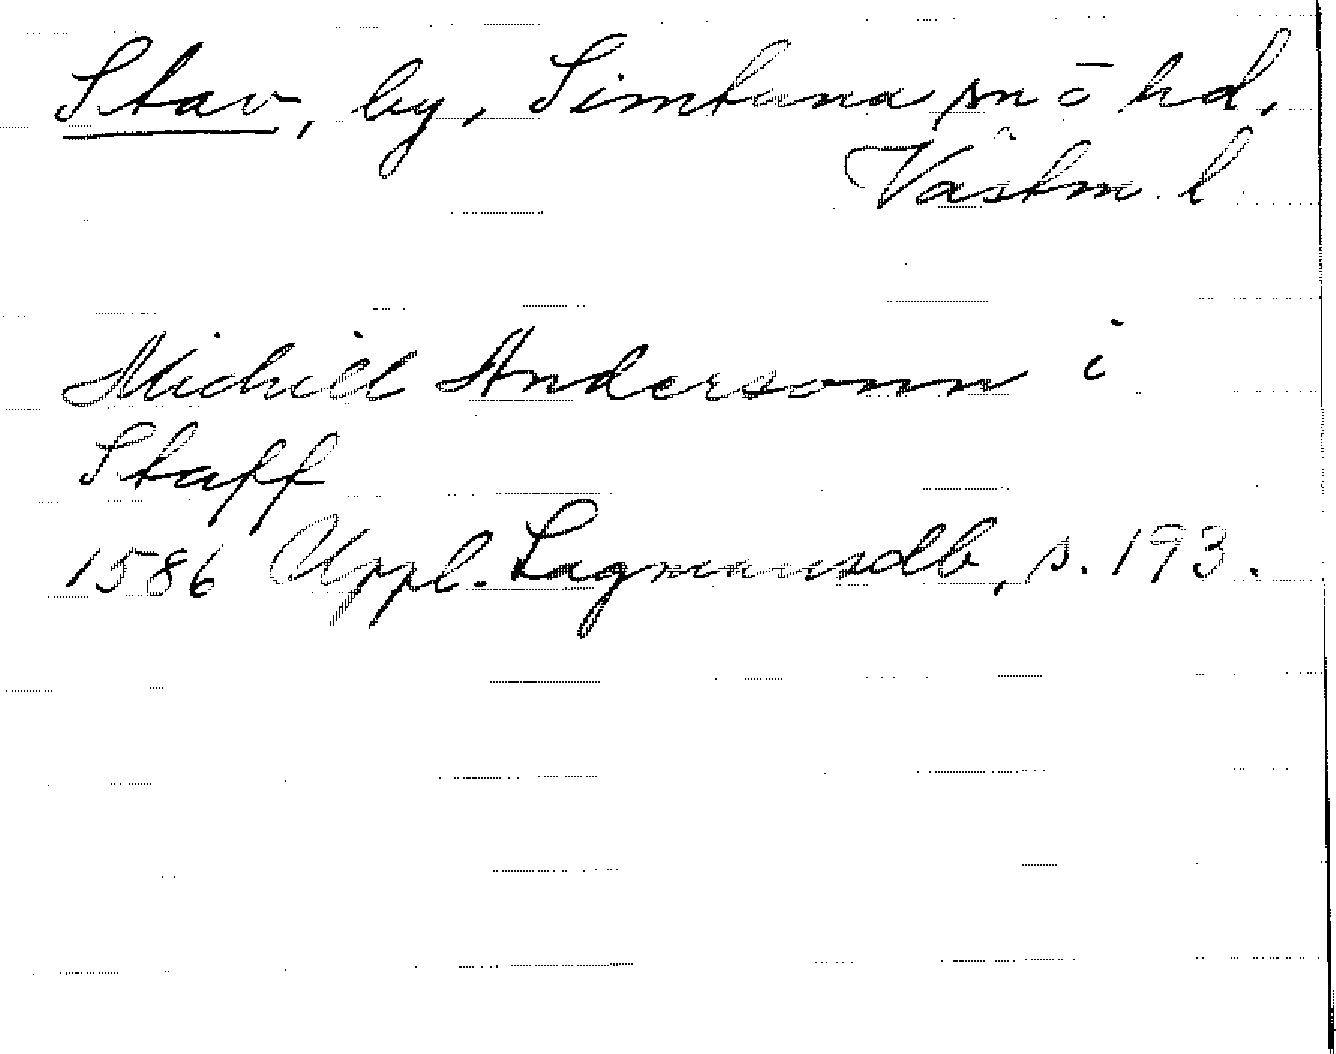 Stav, by, Simtuna sn ō hd,
Västm. l.
Michill Andersonn i
Staff
1586 Uppl. Lagmansdb, s. 193.